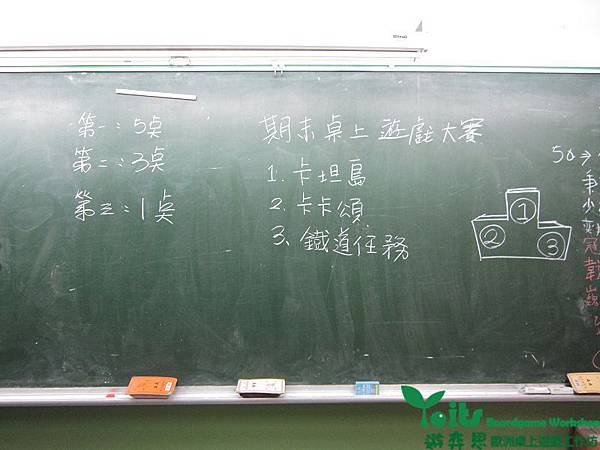 第一:5桌
第二:3桌
第三:1桌
期末桌上遊戲大賽
1. 卡坦島
2. 卡卡頌
3. 鐵道任務
1
2
3
50⇒
少
冠
Yoits Boardgame Workshop
遊弈思 歐洲桌上遊戲工作坊